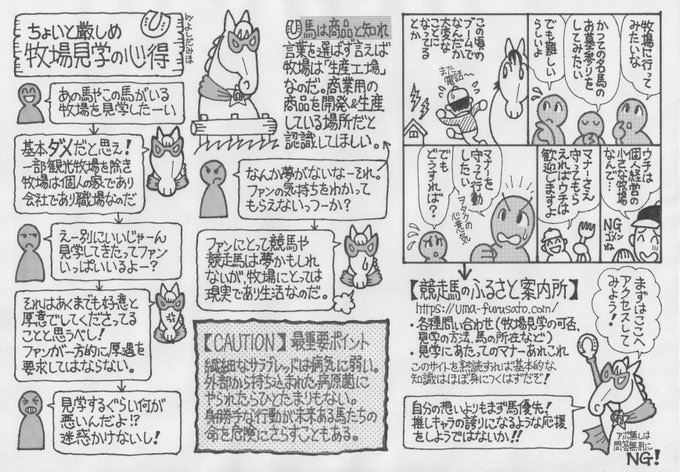 ちょいと厳しめ
牧場見学の心得
あの馬やこの馬がいる
牧場を見学したーい
基本ダメだと思え!
一部観光牧場を除き
牧場は個人の家であり
会社であり職場なのだ
えー別にいいじゃーん
見学してきたってファン
いっぱいいるよー?
それはあくまでも好意と
厚意でしてくださってる
ことと思うべし!
ファンが一方的に厚遇を
要求してはならない。
見学するぐらい何が
悪いんだよ!?
迷惑かけないし!
馬は商品と知れ
言葉を選ばず言えば
牧場は「生産工場」
なのだ。商業用の
商品を開発&生産
している場所だと
認識してほしい。
なんか夢がないなーそれ。
ファンの気持ちをわかって
もらえないっつーか?
ファンにとって競馬や
競走馬は夢かもしれ
ないが、牧場にとっては
現実であり生活なのだ。
【CAUTION】最重要ポイント
繊細なサラブレッドは病気に弱い。
外部から持ち込まれた病原菌に
やられたらひとたまりもない。
身勝手な行動が未来ある馬たちの
命を危険にさらすこともある。
牧場に行って
みたいな
かつての名馬の
お墓参りを
してみたい
でも難しい
らしいよ
この頃の
ブームで
なんだか
大変な
ことに
なってる
また
電話〜
ウチは
個人経営の
小さな牧場
なんで…
NG
ゴメンね
マナーさえ
守ってもら
えればウチは
歓迎しますよ
マナーを
守って行動
したい
ヲタクの
心意気
でも
どうすれば?
【競走馬のふるさと案内所】
https://uma-furusato.com/
・各種問い合わせ(牧場見学の可否、
見学の方法、馬の所在など)
・見学にあたってのマナーあれこれ
このサイトを熟読すれば基本的な
知識はほぼ身につくはずだぞ!
まずはここへ
アクセスして
みよう!
自分の想いよりもまず馬優先!
推しキャラの誇りになるような応援
をしようではないか!!
アポ無しは
問答無用に
NG!